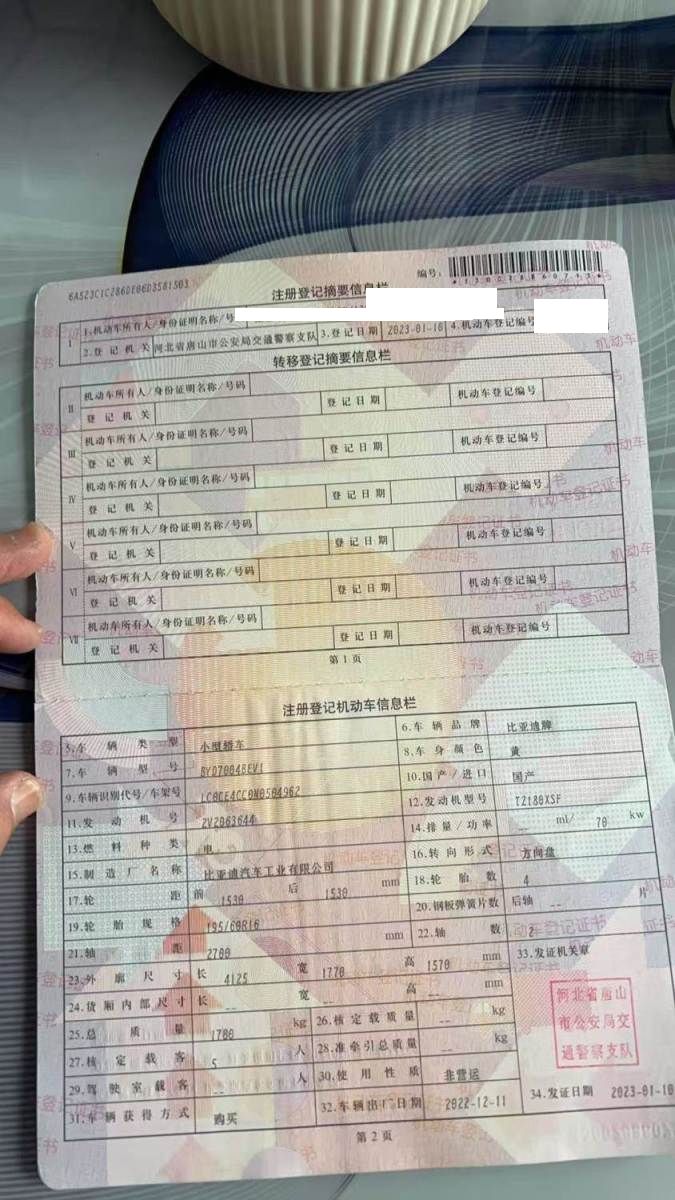 6A523C1C286DE06D3581503
编号：
注册登记摘要信息栏
I 1.机动车所有人/身份证明名称/号
2.登记机关 河北省唐山市公安局交通警察支队 3.登记日期 2023-01-10 4.机动车登记编号
转移登记摘要信息栏
II 机动车所有人/身份证明名称/号码
登记机关 登记日期 机动车登记编号
III 机动车所有人/身份证明名称/号码
登记机关 登记日期 机动车登记编号
IV 机动车所有人/身份证明名称/号码
登记机关 登记日期 机动车登记编号
V 机动车所有人/身份证明名称/号码
登记机关 登记日期 机动车登记编号
VI 机动车所有人/身份证明名称/号码
登记机关 登记日期 机动车登记编号
VII 机动车所有人/身份证明名称/号码
登记机关 登记日期 机动车登记编号
第1页
注册登记机动车信息栏
5.车辆类型 小型轿车 6.车辆品牌 比亚迪牌
7.车辆型号 BYD7004BEV1 8.车身颜色 黄
9.车辆识别代号/车架号 LC0CE4CC0N0504962 10.国产/进口 国产
11.发动机号 2V2063644 12.发动机型号 TZ180XSF
13.燃料种类 电 14.排量/功率 -- ml/ 70 kw
15.制造厂名称 比亚迪汽车工业有限公司 16.转向形式 方向盘
17.轮距 前 1530 后 1530 mm 18.轮胎数 4
19.轮胎规格 195/60R16 20.钢板弹簧片数 后轴 -- 片
21.轴距 2700 mm 22.轴数 2
23.外廓尺寸 长 4125 宽 1770 高 1570 mm 33.发证机关章
24.货厢内部尺寸 长 -- 宽 -- 高 -- mm
25.总质量 1700 kg 26.核定载质量 -- kg
27.核定载客 5 人 28.准牵引总质量 -- kg
29.驾驶室载客 -- 人 30.使用性质 非营运
31.车辆获得方式 购买 32.车辆出厂日期 2022-12-11 34.发证日期 2023-01-10
河北省唐山
市公安局交
通警察支队
第2页